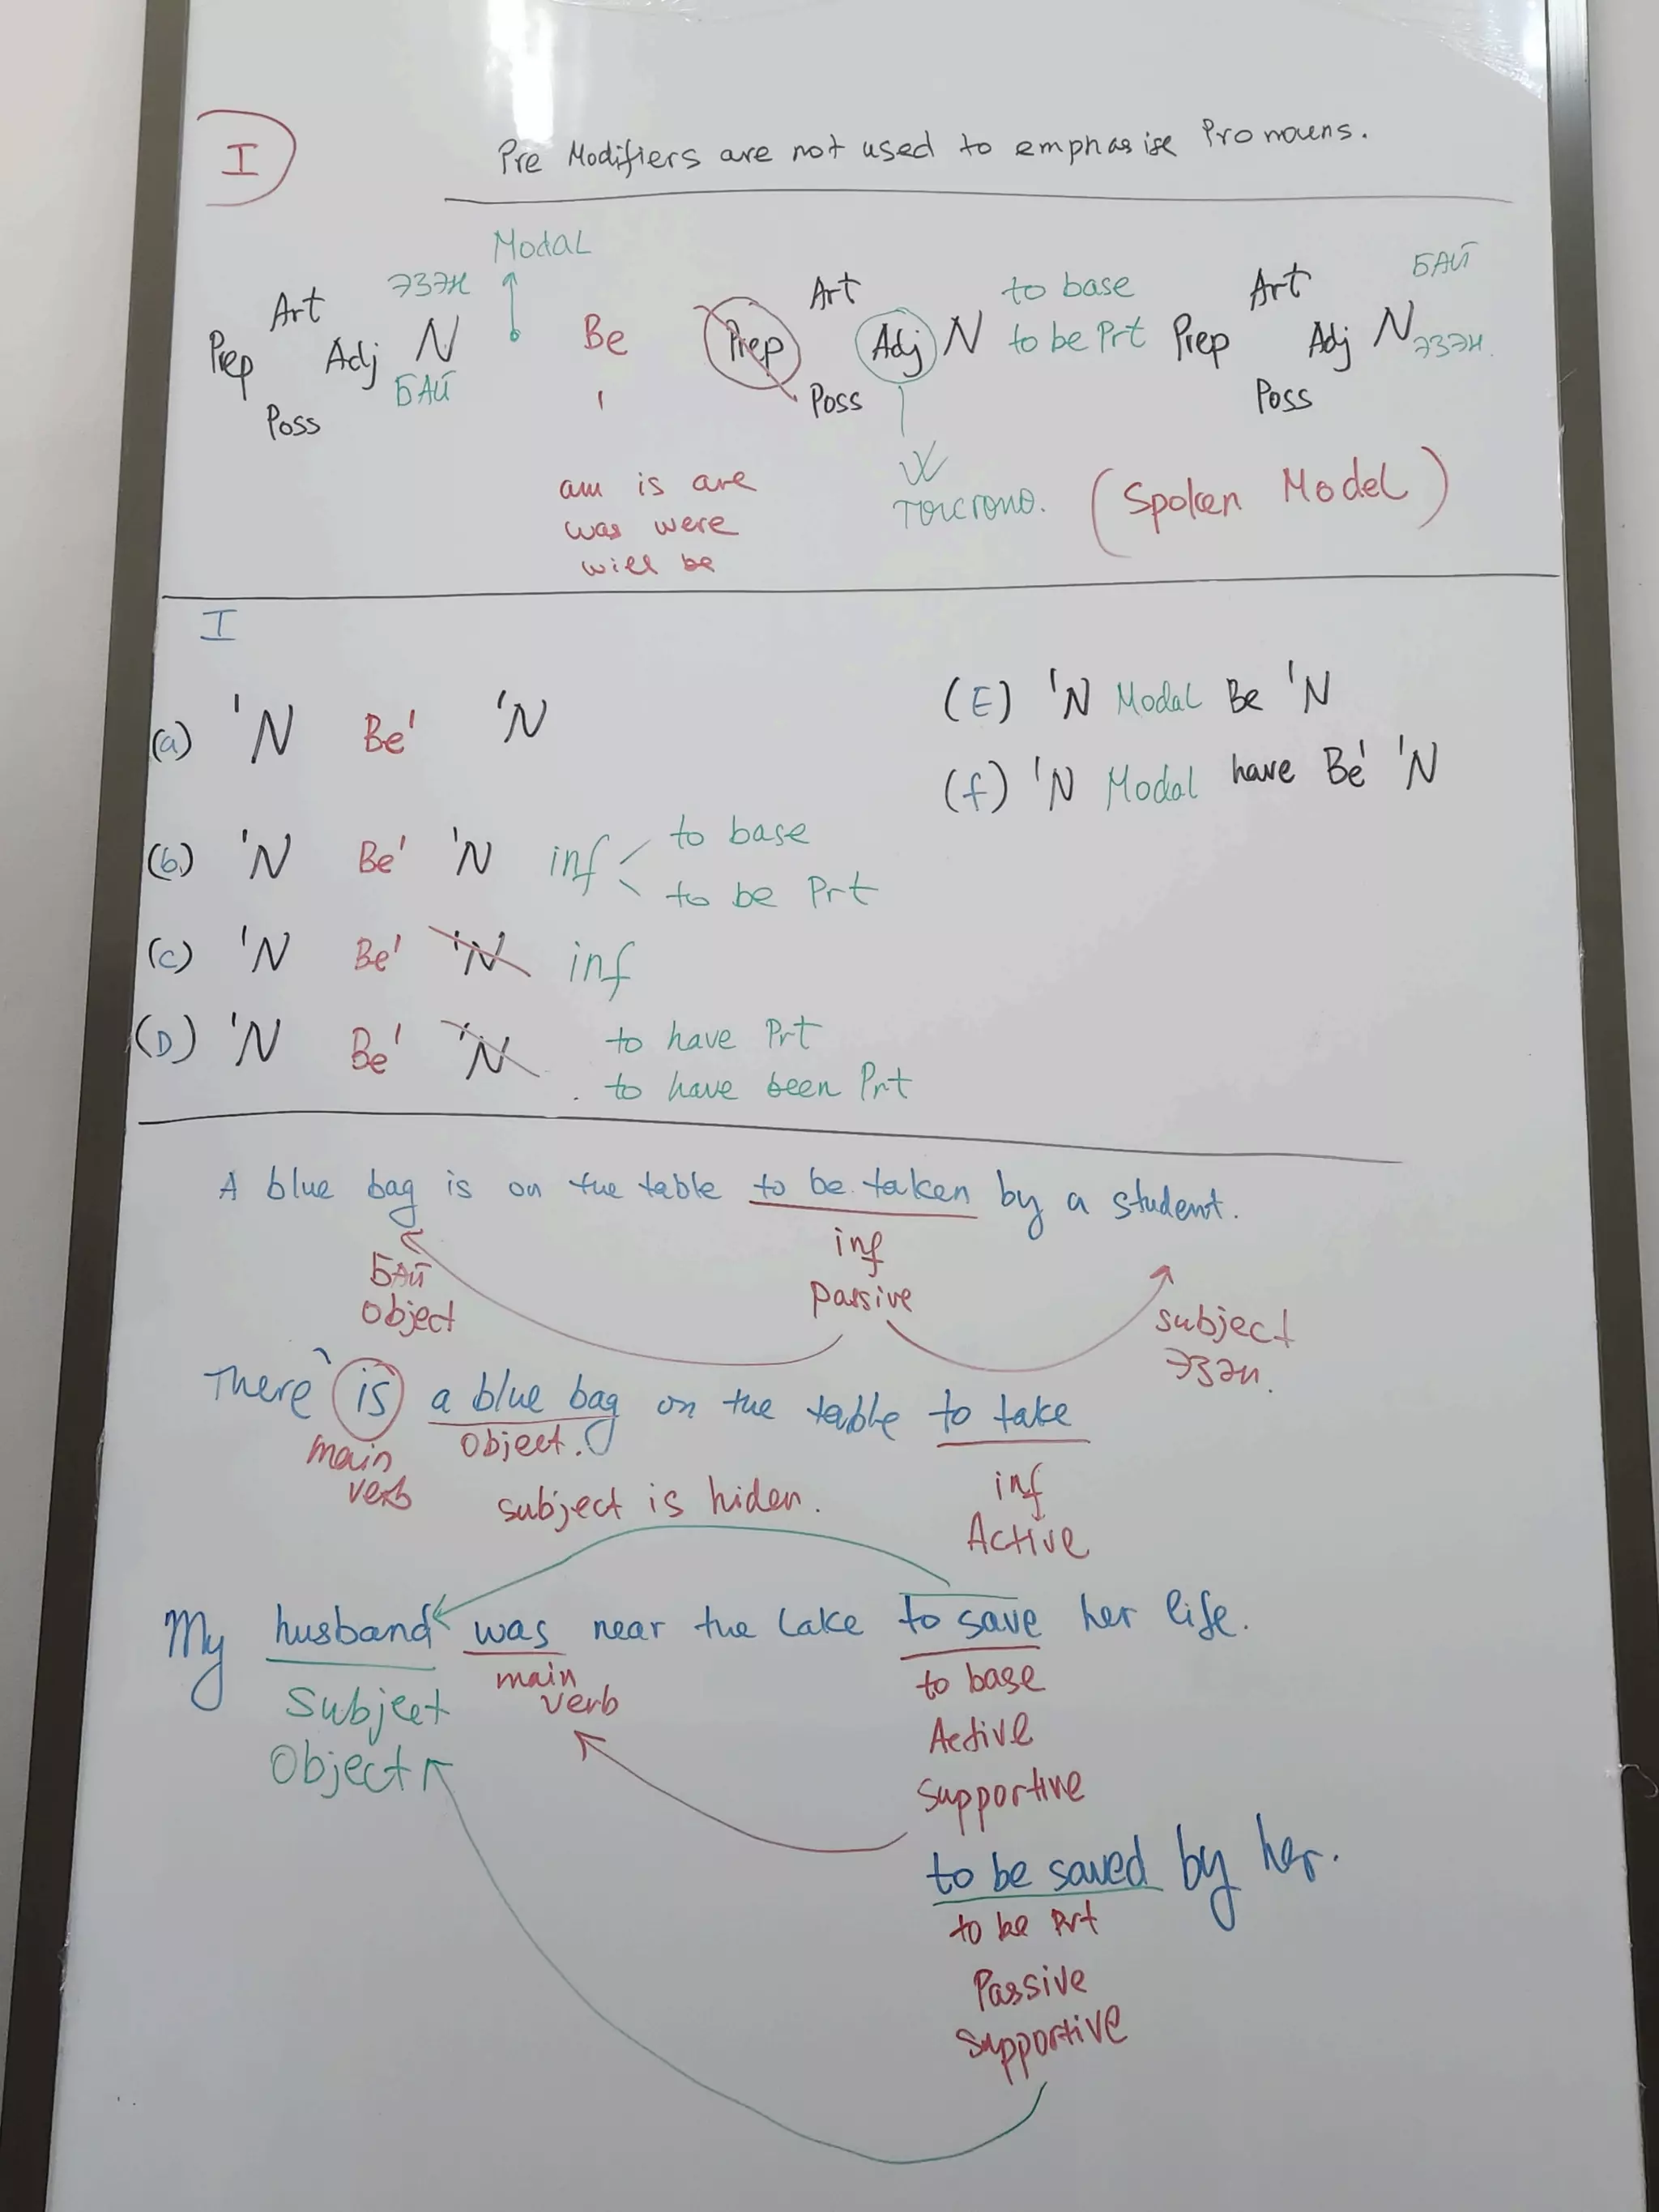 I
Pre Modifiers are not used to emphasise Pronouns.
Modal
Art ЭЗЭН Art to base Art БАЙ
Prep Adj N Be Prep Adj N to be Prt Prep Adj N ЭЗЭН.
Poss БАЙ Poss Poss
am is are
was were
will be
төгсгөнө.
(Spoken Model)
I
(a) 'N Be' 'N
(E) 'N Modal Be 'N
(f) 'N Modal have Be' 'N
(b) 'N Be' 'N inf to base
to be Prt
(c) 'N Be' 'N inf
(D) 'N Be' 'N to have Prt
to have been Prt
A blue bag is on the table to be taken by a student.
БАЙ inf
object passive subject
эзэн.
There is a blue bag on the table to take
main object.
verb subject is hiden. inf
Active
My husband was near the lake to save her life.
Subject main to base
verb Active
Object supportive
to be saved by her.
to be Prt
Passive
supportive